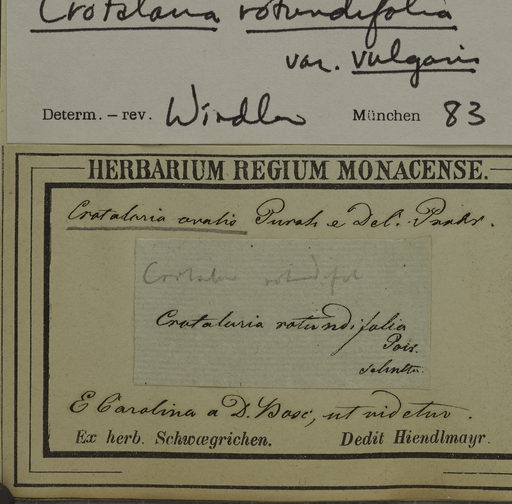 Crotalaria rotundifolia
var. vulgaris
Determ. – rev. Windler München 83
HERBARIUM REGIUM MONACENSE.
Crotalaria ovalis Pursh e Del.
Crotalar rotundifol
Crotalaria rotundifolia
Poir.
E Carolina a D. Bosc, ut videtur.
Ex herb. Schwœgrichen. Dedit Hiendlmayr.